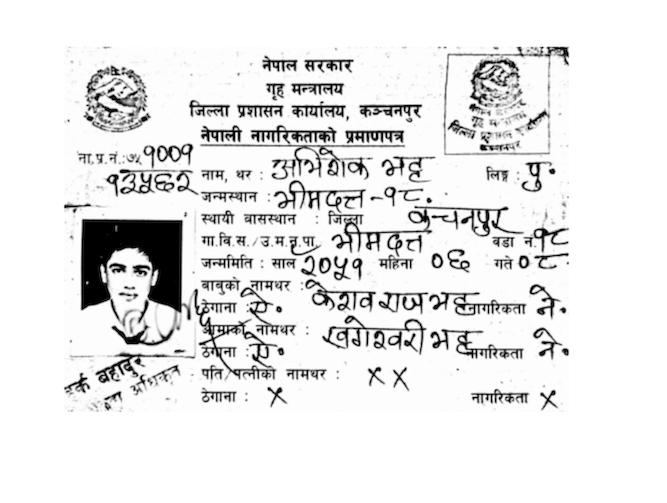 नेपाल सरकार
गृह मन्त्रालय
जिल्ला प्रशासन कार्यालय, कञ्चनपुर
नेपाली नागरिकताको प्रमाणपत्र
नेपाल सरकार
गृह मन्त्रालय
जिल्ला प्रशासन कार्यालय
कञ्चनपुर
ना.प्र.नं.: ७५१००१
१३५६२
नाम, थर : अभिशेक भट्ट लिङ्ग : पु.
जन्मस्थान : भीमदत्त-१८.
स्थायी बासस्थान : जिल्ला कन्चनपुर
गा.वि.स./उ.म.न.पा. भीमदत्त वडा नं. १८
जन्ममिति : साल २०५१ महिना ०६ गते ०८
बाबुको नामथर : केशव राज भट्ट नागरिकता ने.
ठेगाना : ऐ.
आमाको नामथर : खगेश्वरी भट्ट नागरिकता ने.
ठेगाना : ऐ.
पति/पत्नीको नामथर : XX
ठेगाना : X नागरिकता X
बहादुर
अधिकृत